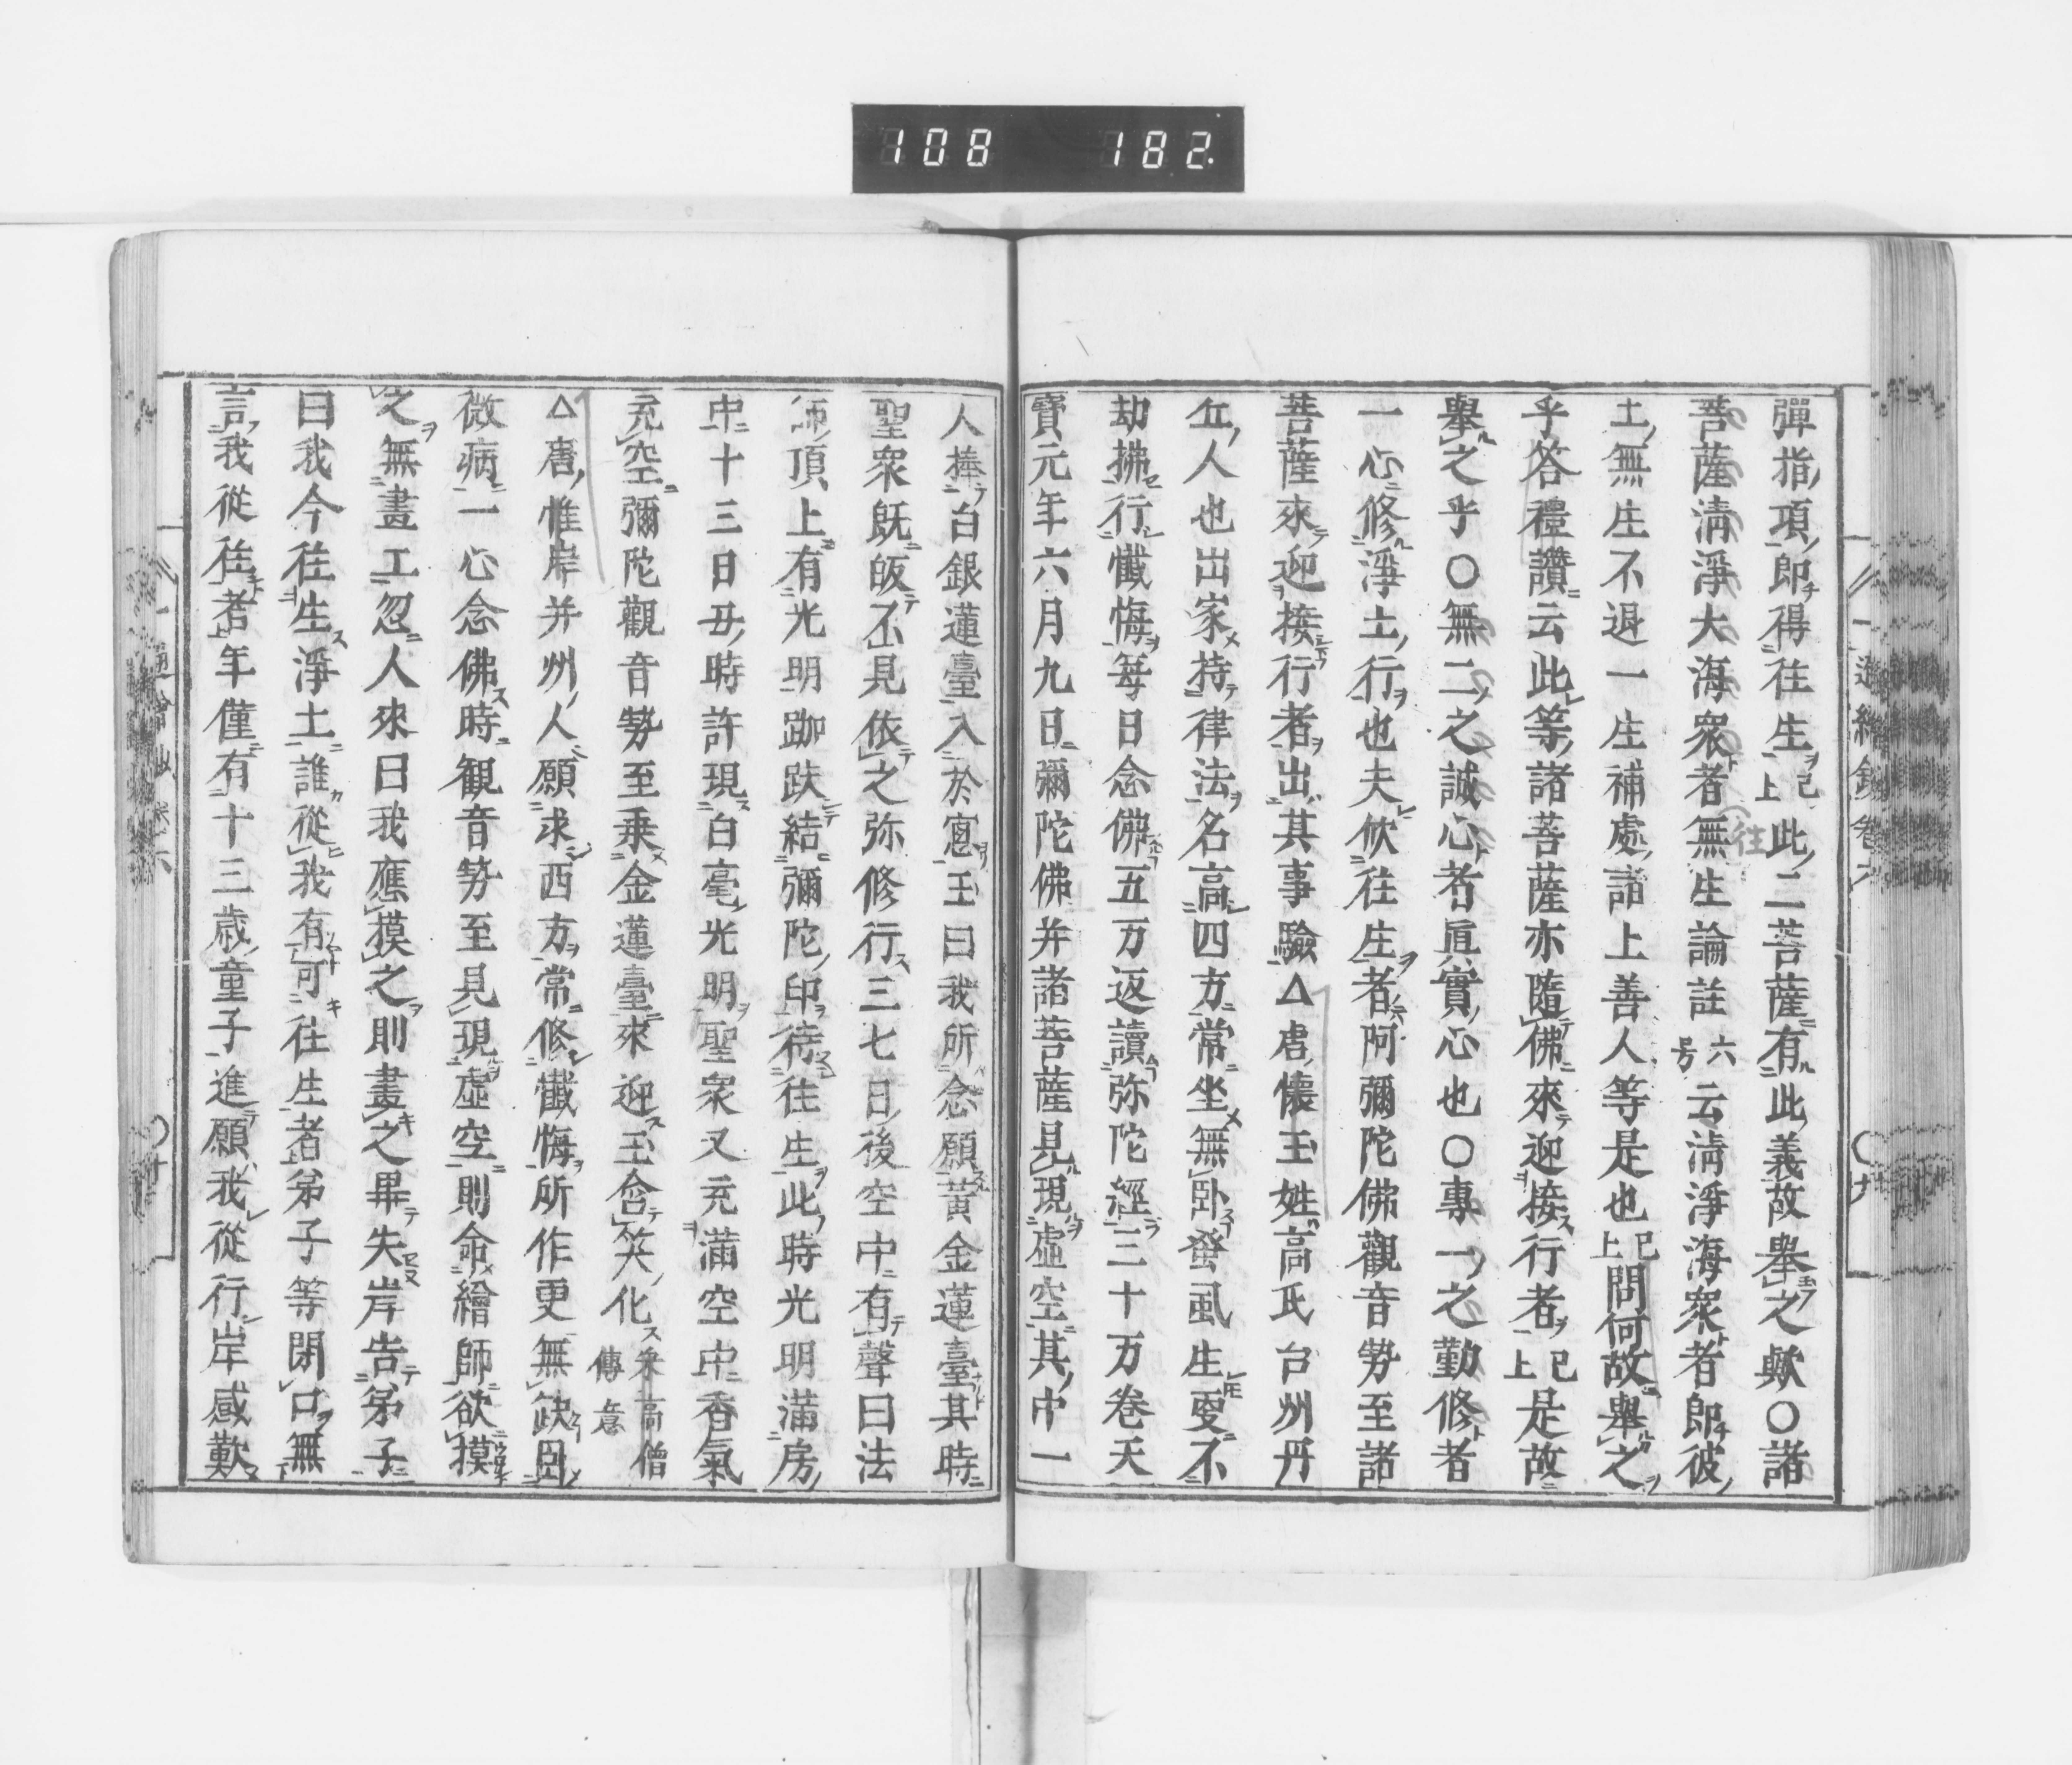 108 182
彈指項即得往生已上此二菩薩有此義故舉之歟〇諸
菩薩清淨大海衆者無生論註六号云清淨海衆者即彼
往
土無生不退一生補處諸上善人等是也已上問何故舉之
乎答禮讚云此等諸菩薩亦隨佛來迎接行者已上是故
舉之乎〇無二之誠心者眞實心也〇專一之勤修者
一心修淨土行也夫欣往生者阿彌陀佛觀音勢至諸
菩薩來迎接行者出其事驗△唐懷玉姓高氏台州丹
丘人也出家持律法名高四方常坐無臥蚤虱生更不
劫拂行懺悔每日念佛五万返讀弥陀經三十万卷天
寶元年六月九日彌陀佛并諸菩薩見現虛空其中一
人捧白銀蓮臺入於窓玉曰我所念願黃金蓮臺其時
聖衆既皈不見依之弥修行三七日後空中有聲曰法
師頂上有光明跏趺結彌陀印待往生此時光明滿房
中十三日丑時許現白毫光明聖衆又充滿空中香氣
充空彌陀觀音勢至乘金蓮臺來迎玉含笑化朱高僧傳意
△唐惟岸并州人願求西方常修懺悔所作更無缺因
微病一心念佛時観音勢至見現虛空則命繪師欲摸
之無畫工忽人來曰我應摸之則畫之畢失岸告弟子
曰我今往生淨土誰從我有可往生者弟子等閉口無
言我從往者年僅有十三歳童子進願我從行岸感歎